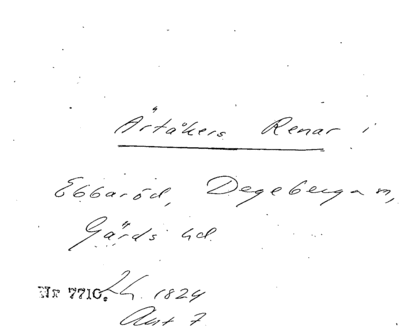 Ärtåkers Renar i
Ebbaröd, Degeberga sn,
Gärds hd.
Nr 7710. Lh. 1824
Avt 7